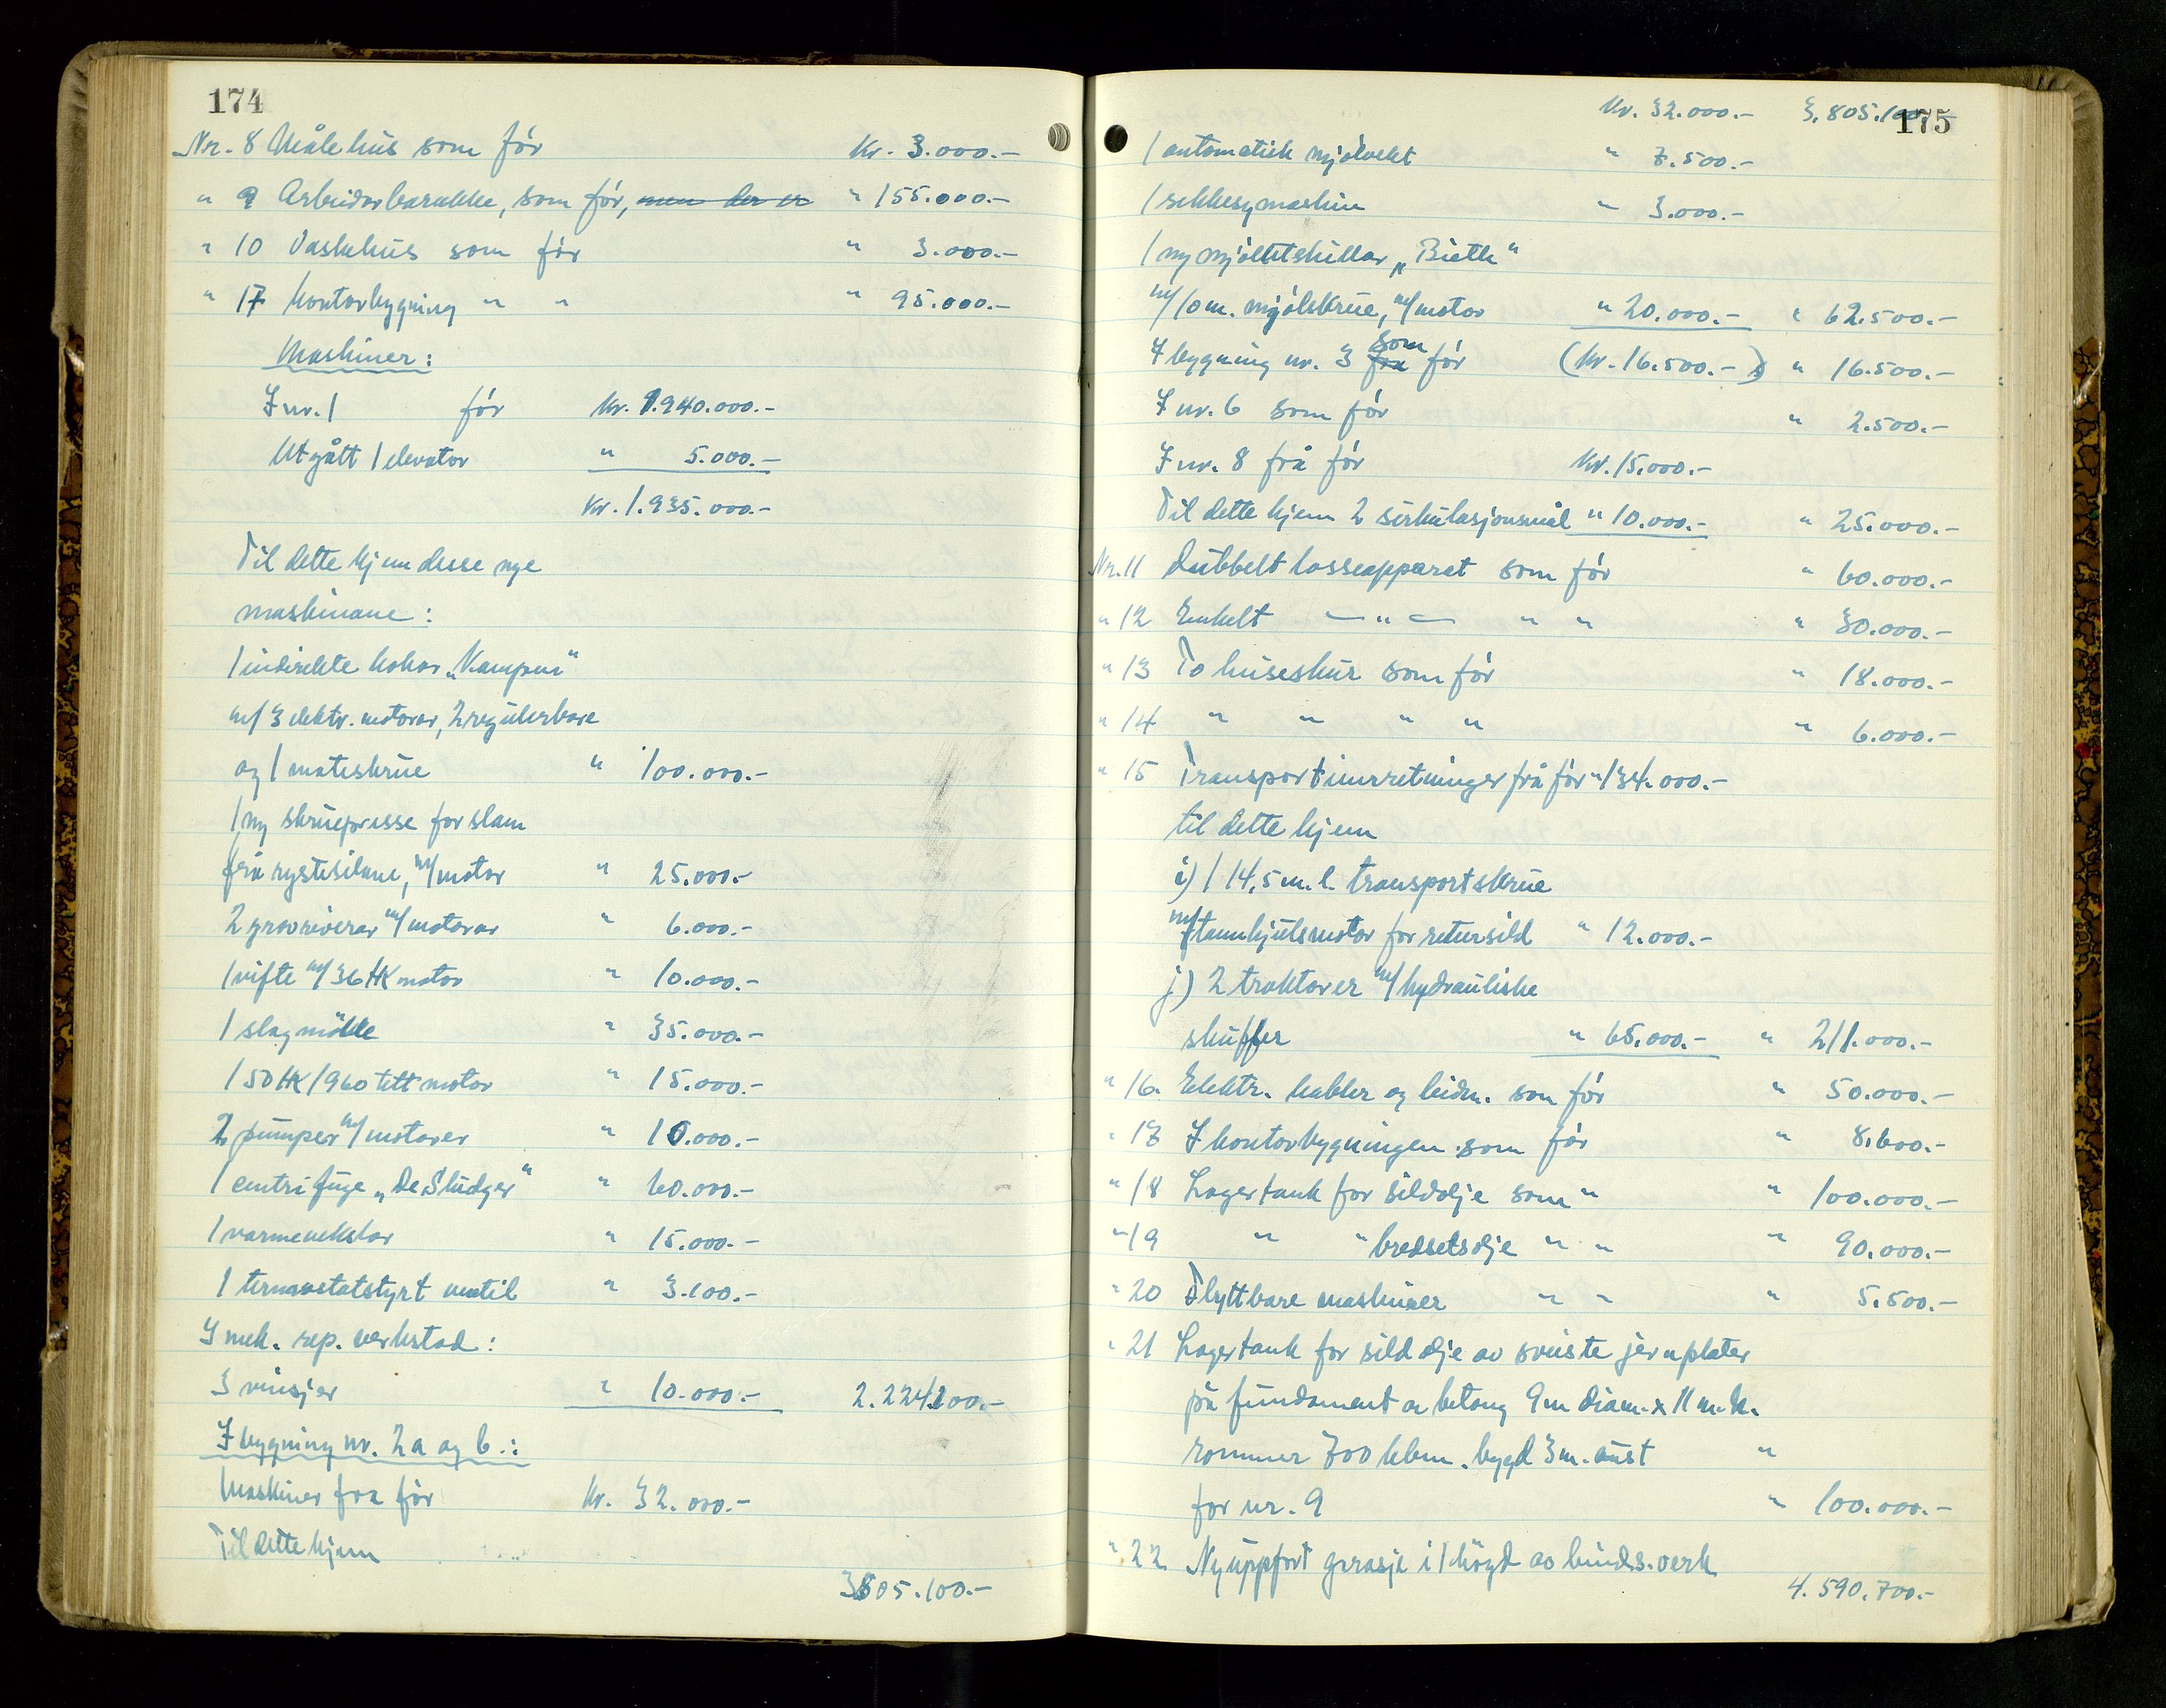 174
Nr. 8 Målehus som før Kr. 3.000.-
" 9 Arbeidarbarakke, som før, men der er " 155.000.-
" 10 Vaskehus som før " 3.000.-
" 17 Kontorbygning " " " 95.000.-
Maskiner:
I nr. 1 før Kr. 1.940.000.-
Utgått 1 elevator " 5.000.-
Kr. 1.935.000.-
Til dette kjem desse nye
maskinane:
1 indirekte kokar „Kampen"
m/ 3 elektr. motorar, 2 regulerbare
og 1 mateskrue " 100.000.-
1 ny skruepresse for slam
frå rystesilane, m/motor " 25.000.-
2 grovrivarar m/motorar " 6.000.-
1 vifte m/36 HK motor " 10.000.-
1 slagmölle " 35.000.-
1 50 HK/960 tett motor " 15.000.-
2 pumper m/motorer " 10.000.-
1 centrifuge „De Sludger" " 60.000.-
1 varmevekslar " 15.000.-
1 termostatstyrt ventil " 3.100.-
I mek. rep. verkstad:
3 vinsjer " 10.000.- 2.224.100.-
I bygning nr. 2a og b.:
Maskiner fra før Kr. 32.000.-
Til dette kjem
3.805.100.-
175
Kr. 32.000.- 3.805.100.-
1 automatisk mjølvekt " 7.500.-
1 sekkesymaskin " 3.000.-
1 ny mjøltetskillar „Bieth"
m/10 m. mjølskrue, m/motor " 20.000.- " 62.500.-
I bygning nr. 3 fra som før (Kr. 16.500.-) " 16.500.-
I nr. 6 som før " 2.500.-
I nr. 8 frå før Kr. 15.000.-
Til dette kjem 2 sirkulasjonsmål " 10.000.- " 25.000.-
Nr. 11 Dubbelt losseapparat som før " 60.000.-
" 12 Enkelt — " — " " " 30.000.-
" 13 To huseskur som før " 18.000.-
" 14 " " " " " 6.000.-
" 15 Transportinnretninger frå før " 134.000.-
til dette kjem
i) 1 14,5 m. l. transportskrue
m/tannhjulsmotor for retursild " 12.000.-
j) 2 traktorer m/hydrauliske
skuffer " 65.000.- " 211.000.-
" 16. Elektr. kabler og leidn. som før " 50.000.-
" 17 I kontorbygningen som før " 8.600.-
" 18 Lagertank for sildolje som " " 100.000.-
" 19 " " bredselsolje " " " 90.000.-
" 20 Flyttbare maskiner " " " 5.500.-
" 21 Lagertank for sildolje av sveiste jernplater
på fundament av betong 9 m diam. x 11 m. h.
rommer 700 kbm. bygd 3 m. aust "
for nr. 9 " 100.000.-
" 22 Ny uppført garasje i 1 högd av binds.verk
4.590.700.-